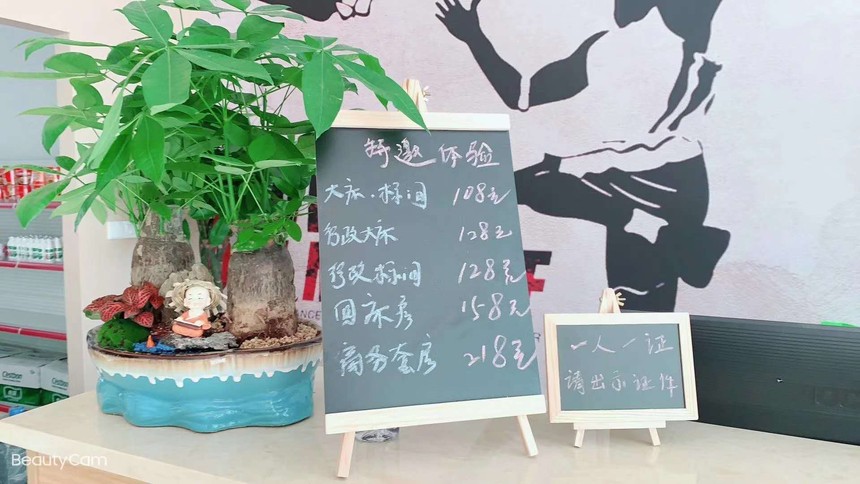 特邀体验
大床.标间 108元
行政大床 128元
行政标间 128元
圆床房 158元
商务套房 218元
一人一证
请出示证件
BeautyCam